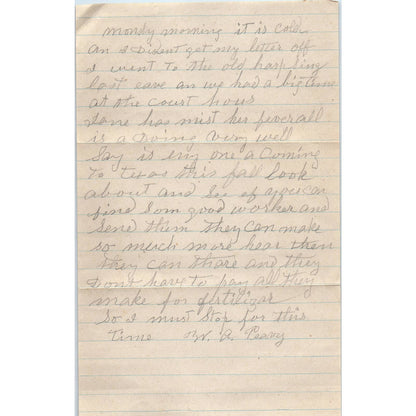 mondy morning it is cold
an I Disent get my letter off
I went to the old harp sing
last eave an we had a big time
at the court hous
has mist his
is a Doing very well
Say is eny one a Coming
to texas this fall look
about and See if you can
find Som good worker and
Send them they can make
so much more hear then
they can thare and they
Dont have to pay all they
make for fertilizar
So I must Stop for this
time W. A. Peavy